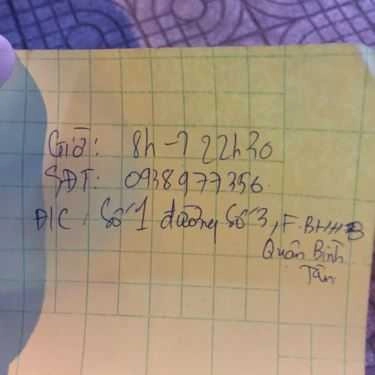 Giờ: 8h → 22h30
SĐT: 0938977356
Đ/C: Số 1 đường Số 3, F. BHHB
Quận Bình
Tân